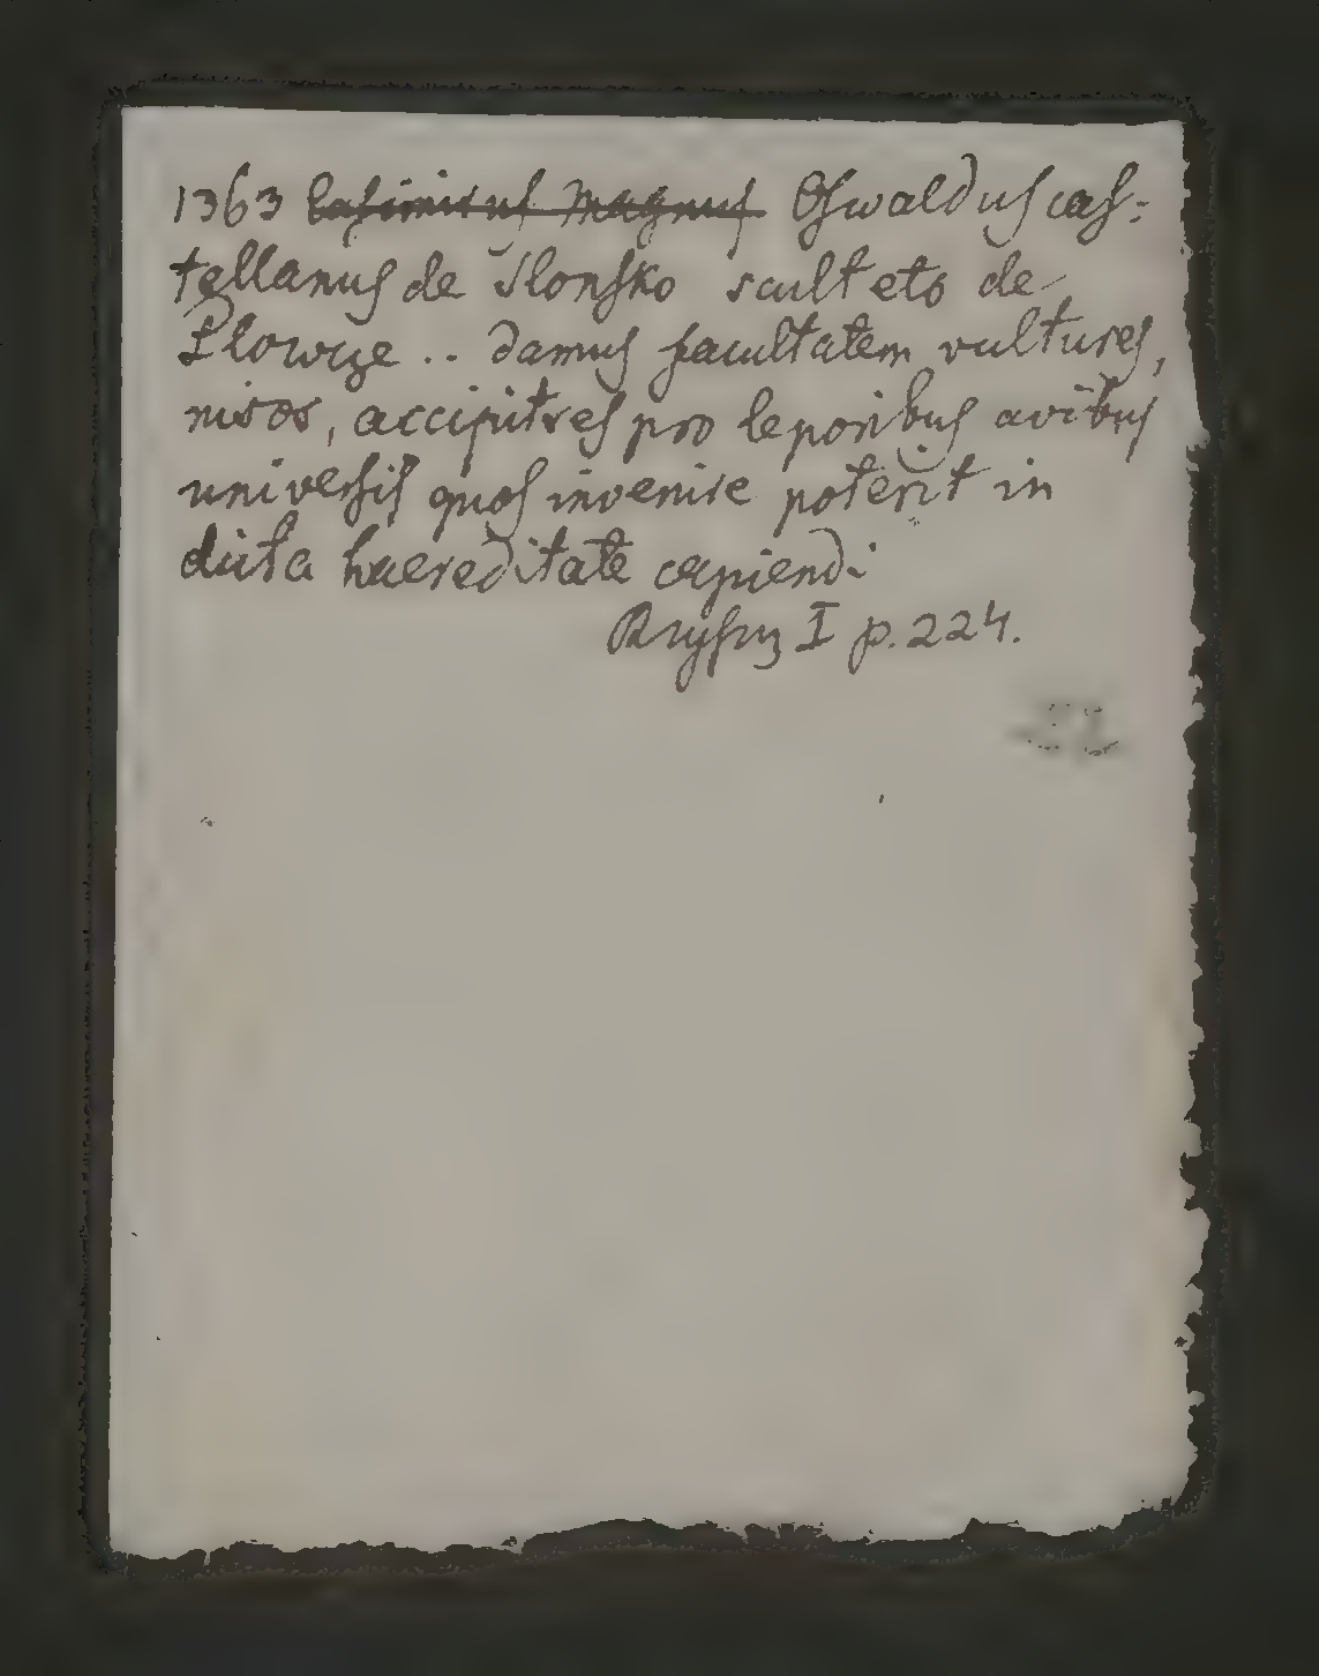 1363 Casimirus Magnus Oswaldus cas:
tellanus de Slonsko sculteto de
Plowcze .. damus facultatem vultures,
nisos, accipitres pro leporibus avibus
universis quos invenire poterit in
dicta haereditate capiendi
I p. 224.